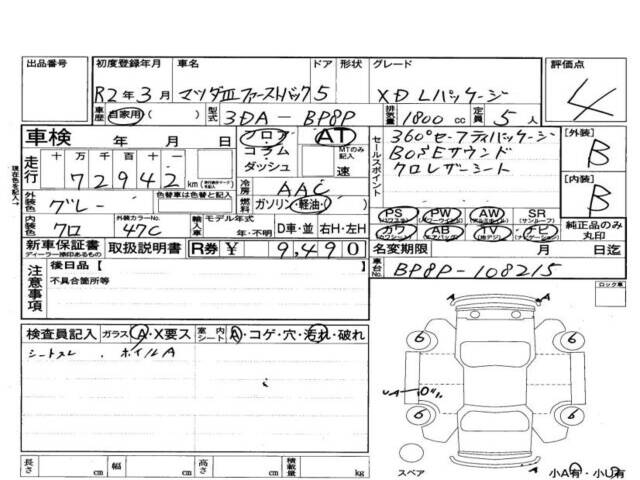 出品番号 初度登録年月 車名 ドア 形状 グレード 評価点
R2年3月 マツダⅢファーストバック 5 XD Lパッケージ 4
車歴 自家用( ) 型式 3DA-BP8P 排気量 1800cc 定員 5人
車検 年 月 日 フロア AT
コラム MTのみ記入
ダッシュ 速
セールスポイント 360°セーフティパッケージ
BOSEサウンド
クロレザーシート
[外装] B
[内装] B
現在色を記入→
走行 十万千百十一
72942km
冷房 AAC
外装色 色替車は色替と記入 グレー 燃料 ガソリン・軽油・( )
内装色 クロ 外装カラーNo. 47C 輸入車 モデル年式 年・不明 D車・並 右H・左H
PS PW AW SR (サンルーフ)
カワ AB TV ナビ
純正品のみ丸印
新車保証書 ディーラー捺印あるもの 取扱説明書 R券 ¥ 9,490
名変期限 月 日迄
車台No. BP8P-108215
注意事項 後日品【
不具合箇所等
ロック車
検査員記入 ガラス A・X要ス 室内シート A・コゲ・穴・汚れ・破れ
シートスレ . ホイルA
A A
6 6
6 6
長さ cm 幅 cm 高さ cm 積載量 kg
スペア 小A有・小U有